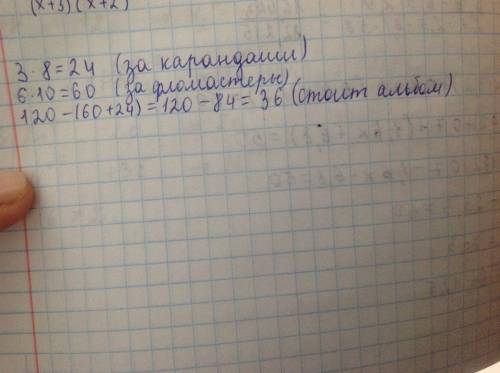 (x+3)(x+2)
3·8=24 (за карандаши)
6·10=60 (за фломастеры)
120-(60+24)=120-84=36 (стоит альбом)